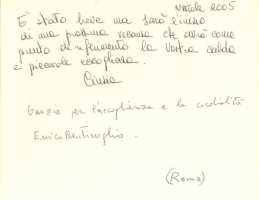 Natale 2005
È stato breve ma sarà l'inizio
di una prossima vacanza che avrà come
punto di riferimento la Vostra calda
e piacevole accoglienza.
Cinzia
Grazie per l'accoglienza e la cordialità
Enrico Bentivoglio.
(Roma)